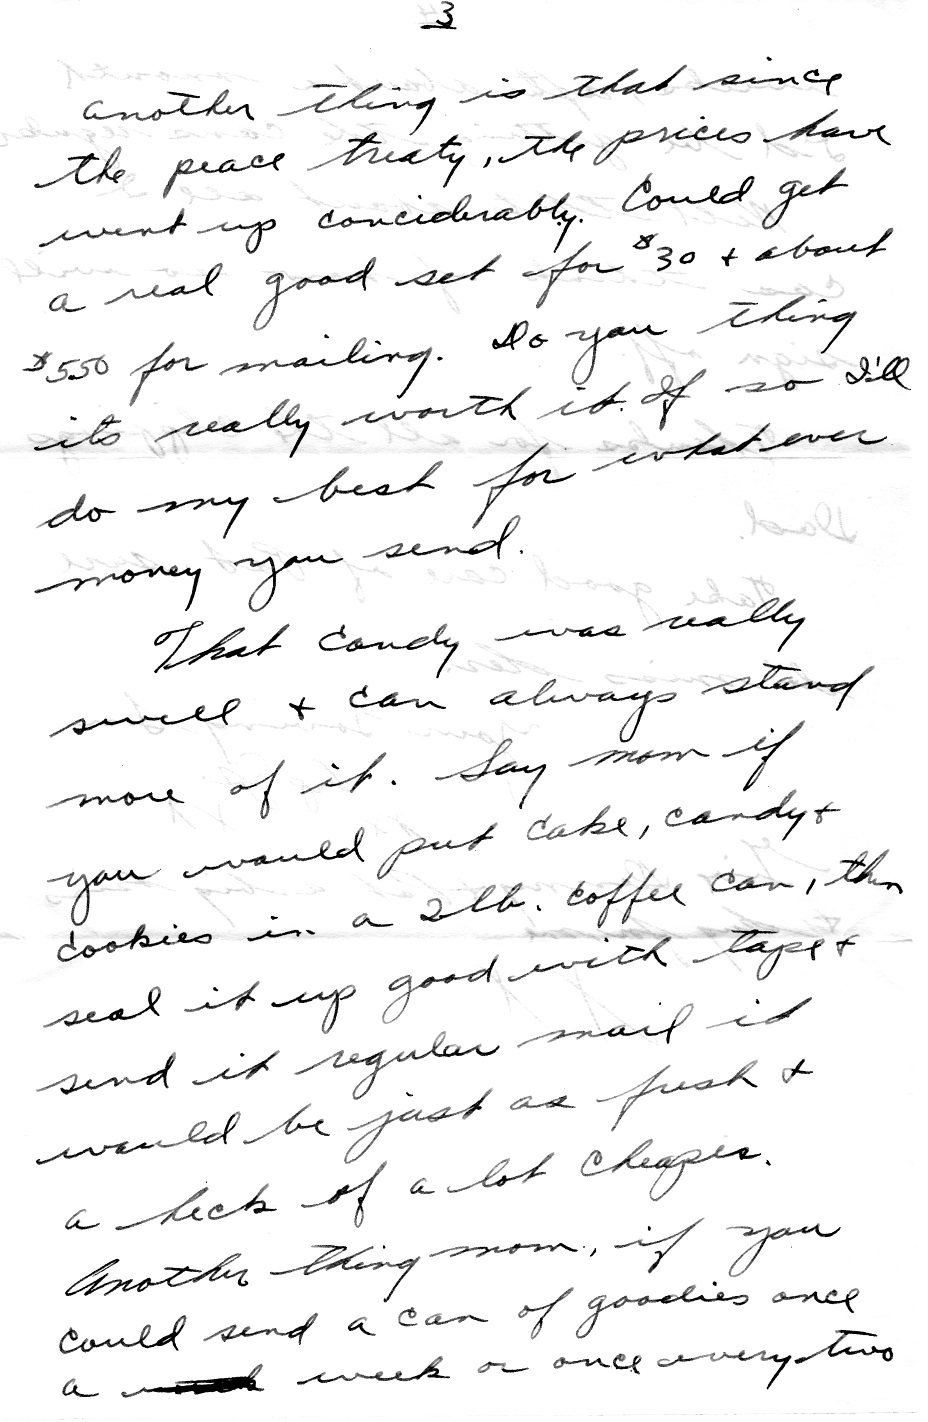 3
another thing is that since
the peace treaty, the prices have
went up conciderably. Could get
a real good set for $30 + about
$550 for mailing. Do you thing
its really worth it. If so I'll
do my best for what ever
money you send.
That candy was really
swell + can always stand
more of it. Say mom if
you would put cake, candy +
cookies in a 2 lb. coffee can, then
seal it up good with tape +
send it regular mail it
would be just as fresh +
a heck of a lot cheaper.
Another thing mom, if you
could send a can of goodies once
a week or once every two